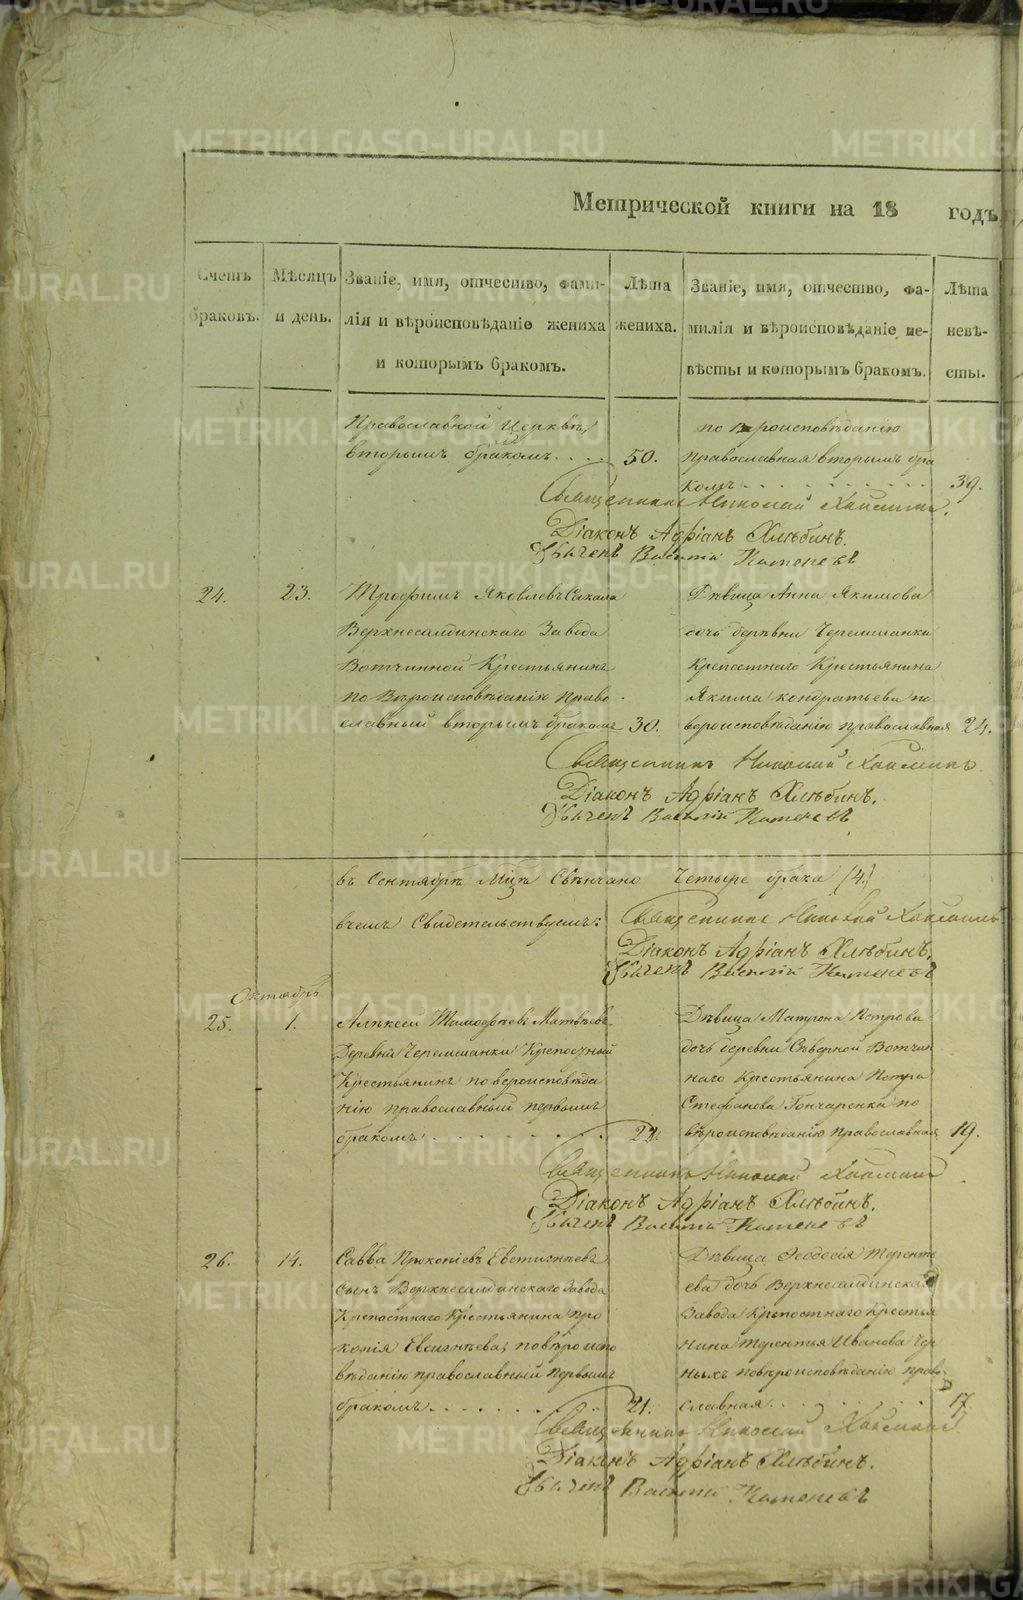 Метрической книги на 18 годъ
Счетъ браковъ.
Мѣсяцъ и день.
Званіе, имя, отчество, фами-
лія и вѣроисповѣданіе жениха
и которымъ бракомъ.
Лѣта жениха.
Званіе, имя, отчество, фа-
милія и вѣроисповѣданіе не-
вѣсты и которымъ бракомъ.
Лѣта невѣ-
сты.
Православной Церквѣ,
вторымъ бракомъ.... 50.
по вѣроисповѣданію
православная вторымъ бра
комъ 39.
Священникъ Николай
Діаконъ Адріанъ Хлѣбинъ.
Василій Каменевъ
24. 23.
Трофимъ Яковлевъ
Верхнесалдинскаго Завода
Вотчинной Крестьянинъ
по Вѣроисповѣданію право
славный вторымъ бракомъ 30.
Дѣвица Анна Якимова
дочь деревни Черемшанки
крепостнаго Крестьянина
Якима кондратьева по
вероисповѣданію православная 24.
Священникъ Николай
Діаконъ Адріанъ Хлѣбинъ.
Василій Каменевъ
въ Сентябрѣ Мцѣ Свѣнчано Четыре брака (4.)
вчемъ Свидетельствуемъ: Священникъ Николай
Діаконъ Адріанъ Хлѣбинъ.
Василій Каменевъ
Октябрь
25. 1.
Алѣксеи Тимофѣевъ Матвѣевъ
Деревни Черемшанки Крепосный
Крестьянинъ по вероисповѣда
нію православный первымъ
бракомъ 22.
Дѣвица Матрона Петрова
дочь деревни Сѣверной Вотчин
наго Крестьянина Петра
Стефанова Гончаренка по
вѣроисповѣданію православная 19.
Священникъ Николай
Діаконъ Адріанъ Хлѣбинъ.
Василій Каменевъ
26. 14.
Савва Прокопіевъ Евстигнѣевъ
сынъ Верхнесалдинскаго Завода
Крепостнаго Крестьянина Про
копія Евсигнѣева, повѣроиспо
вѣданію православный Первымъ
бракомъ 21.
Дѣвица Ѳеодосія Теренть
ева дочь Верхнесалдинскаго
Завода Крепостнаго Крестья
нина Терентья Иванова Чер
ныхъ повѣроисповѣданію право-
славная 17
Священникъ Николай
Діаконъ Адріанъ Хлѣбинъ.
Василій Каменевъ
METRIKI.GASO-URAL.RU